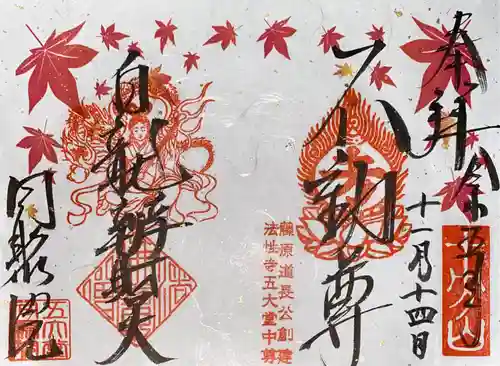 奉拝
令和五年
十一月十四日
不動尊
藤原道長公創建
法性寺五大堂中尊
白蛇辨財天
同聚院